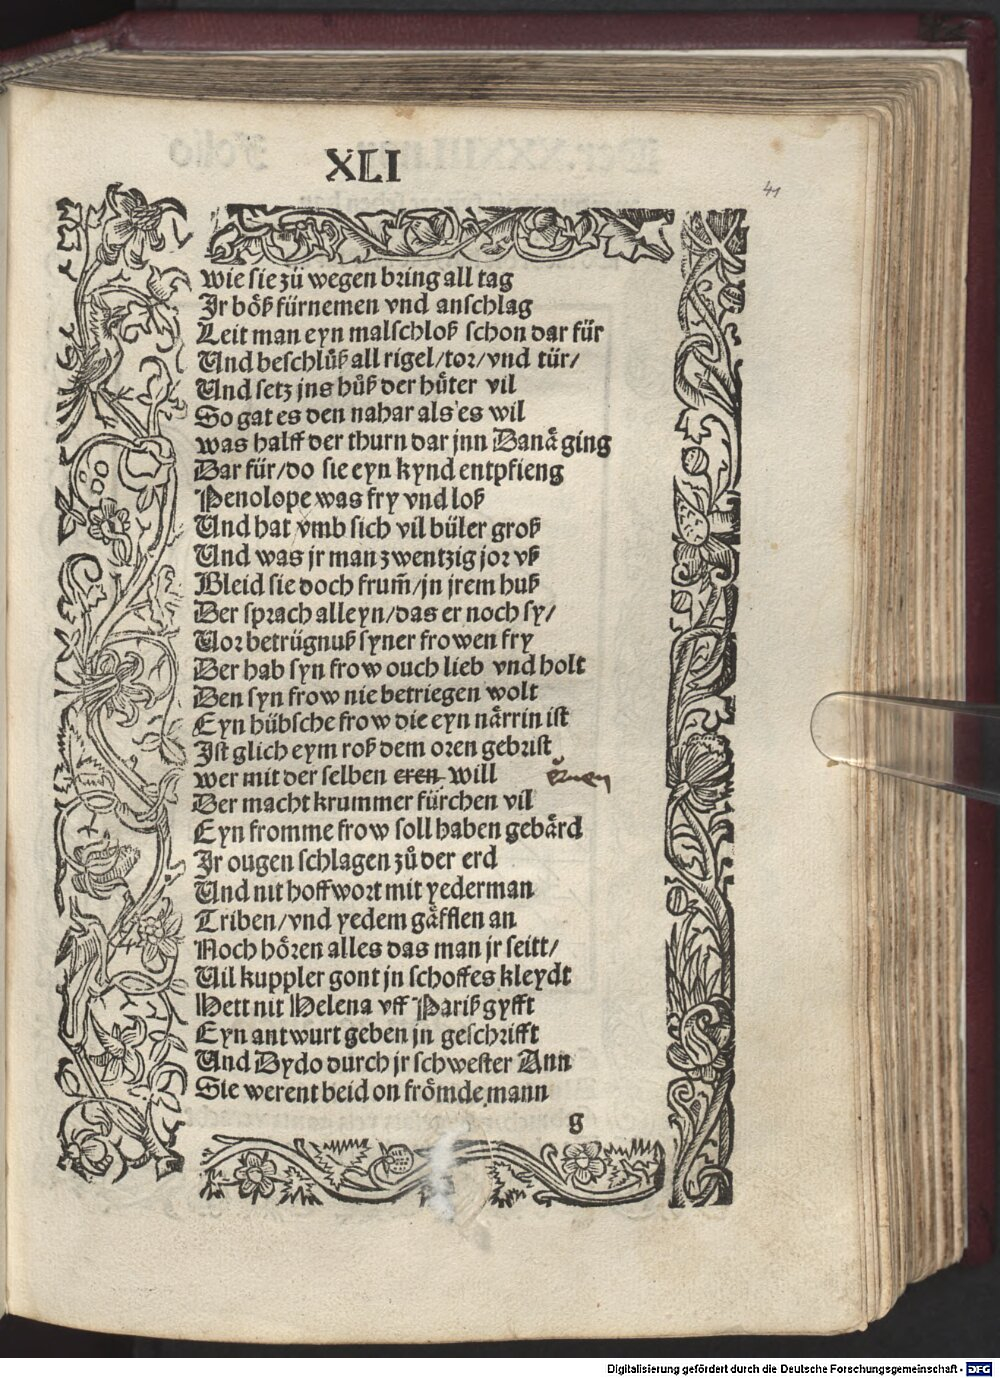 XLI
41
wie sie zů wegen bring all tag
Jr bôß fürnemen vnd anschlag
Leit man eyn malschloß schon dar für
Und beschlůß all rigel/tor/vnd tür/
Und setz jns hůß der hůter vil
So gat es den nahar als es wil
was halff der thurn dar jnn Danâ ging
Dar für/do sie eyn kynd entpfieng
Penolope was fry vnd loß
Und hat vmb sich vil bůler groß
Und was jr man zwentzig jor vß
Bleid sie doch frum̃/jn jrem huß
Der sprach alleyn/das er noch sy/
Vor betrügnuß syner frowen fry
Der hab syn frow ouch lieb vnd holt
Den syn frow nie betriegen wolt
Eyn hübsche frow die eyn nârrin ist
Jst glich eym roß dem oren gebrist
wer mit der selben eren will
Der macht krummer fürchen vil
Eyn fromme frow soll haben gebârd
Jr ougen schlagen zů der erd
Und nit hoffwort mit yederman
Triben/vnd yedem gâfflen an
Noch hôren alles das man jr seitt/
Vil kuppler gont jn schoffes kleydt
Hett nit Helena vff Pariß gyfft
Eyn antwurt geben jn geschrifft
Und Dydo durch jr schwester Ann
Sie werent beid on frômde mann
g
Digitalisierung gefördert durch die Deutsche Forschungsgemeinschaft - DFG